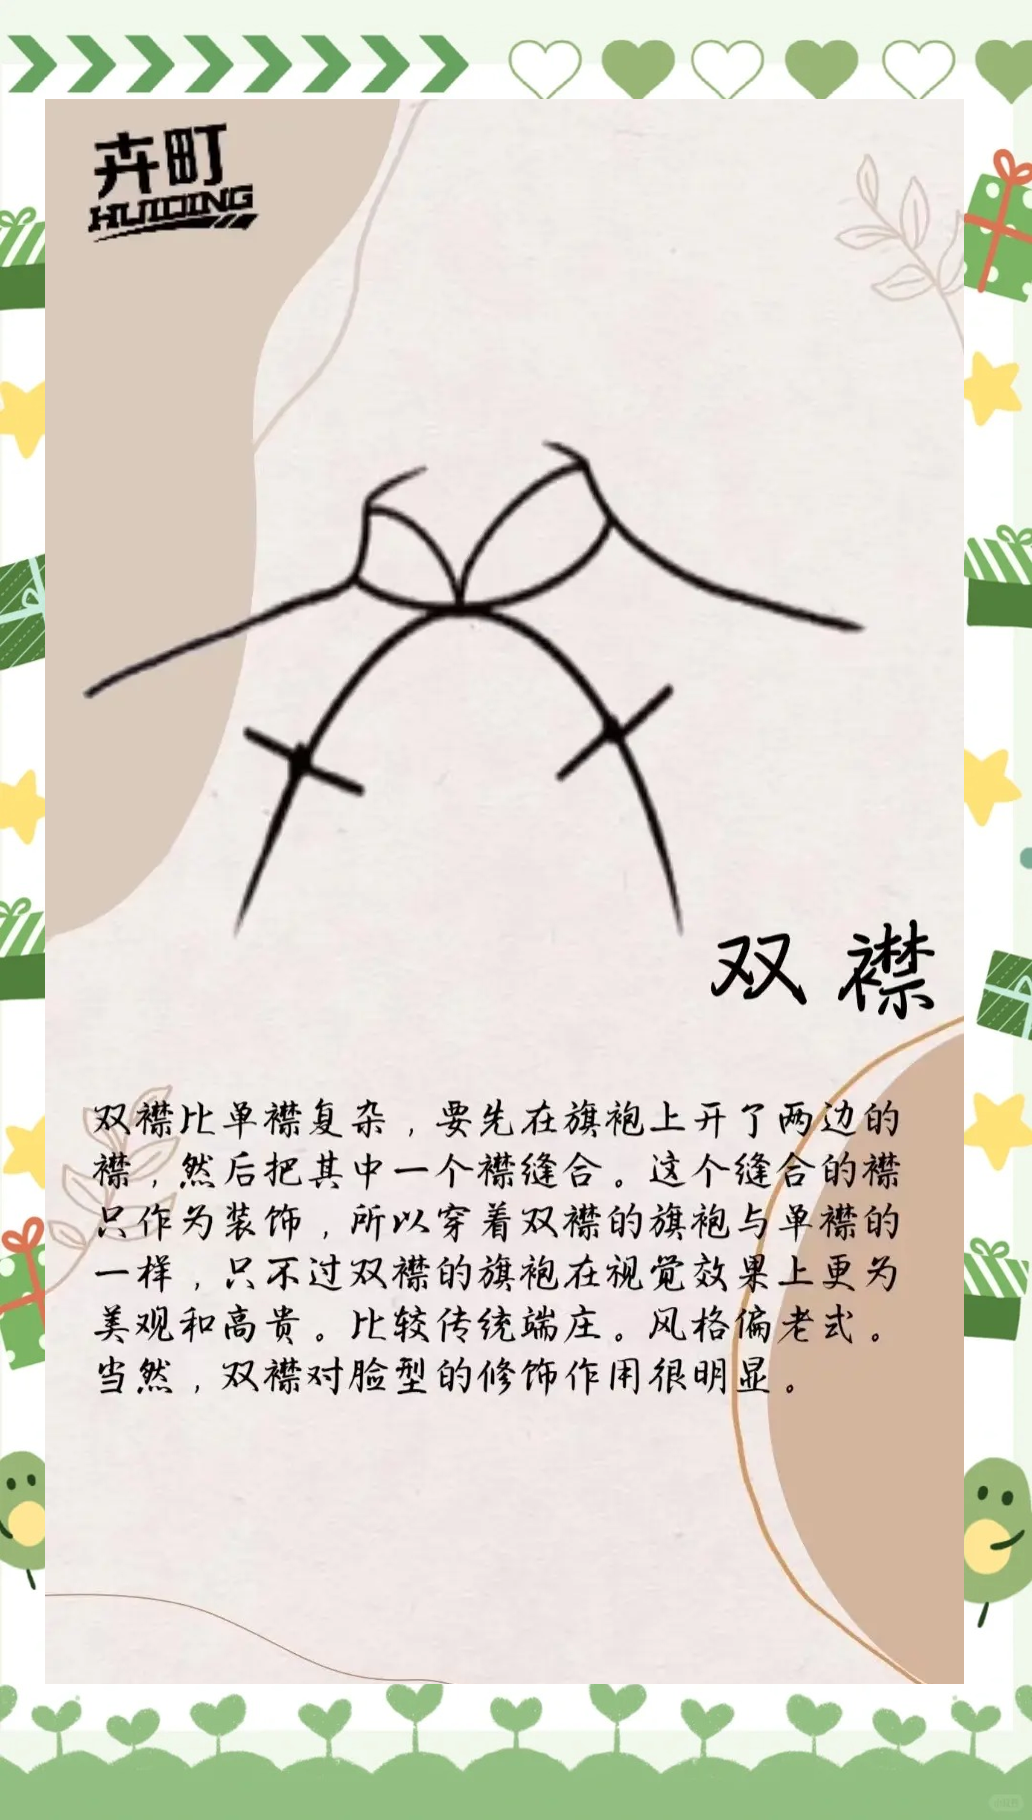 卉町
HUIDING
双襟
双襟比单襟复杂，要先在旗袍上开了两边的
襟，然后把其中一个襟缝合。这个缝合的襟
只作为装饰，所以穿着双襟的旗袍与单襟的
一样，只不过双襟的旗袍在视觉效果上更为
美观和高贵。比较传统端庄。风格偏老式。
当然，双襟对脸型的修饰作用很明显。